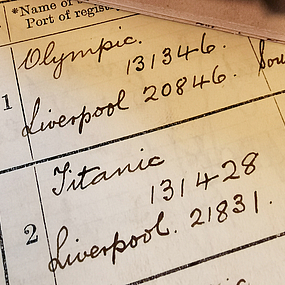 *Name of
Port of regist
1
Olympic.
131346.
Liverpool 20846.
2
Titanic
131428
Liverpool. 21831.